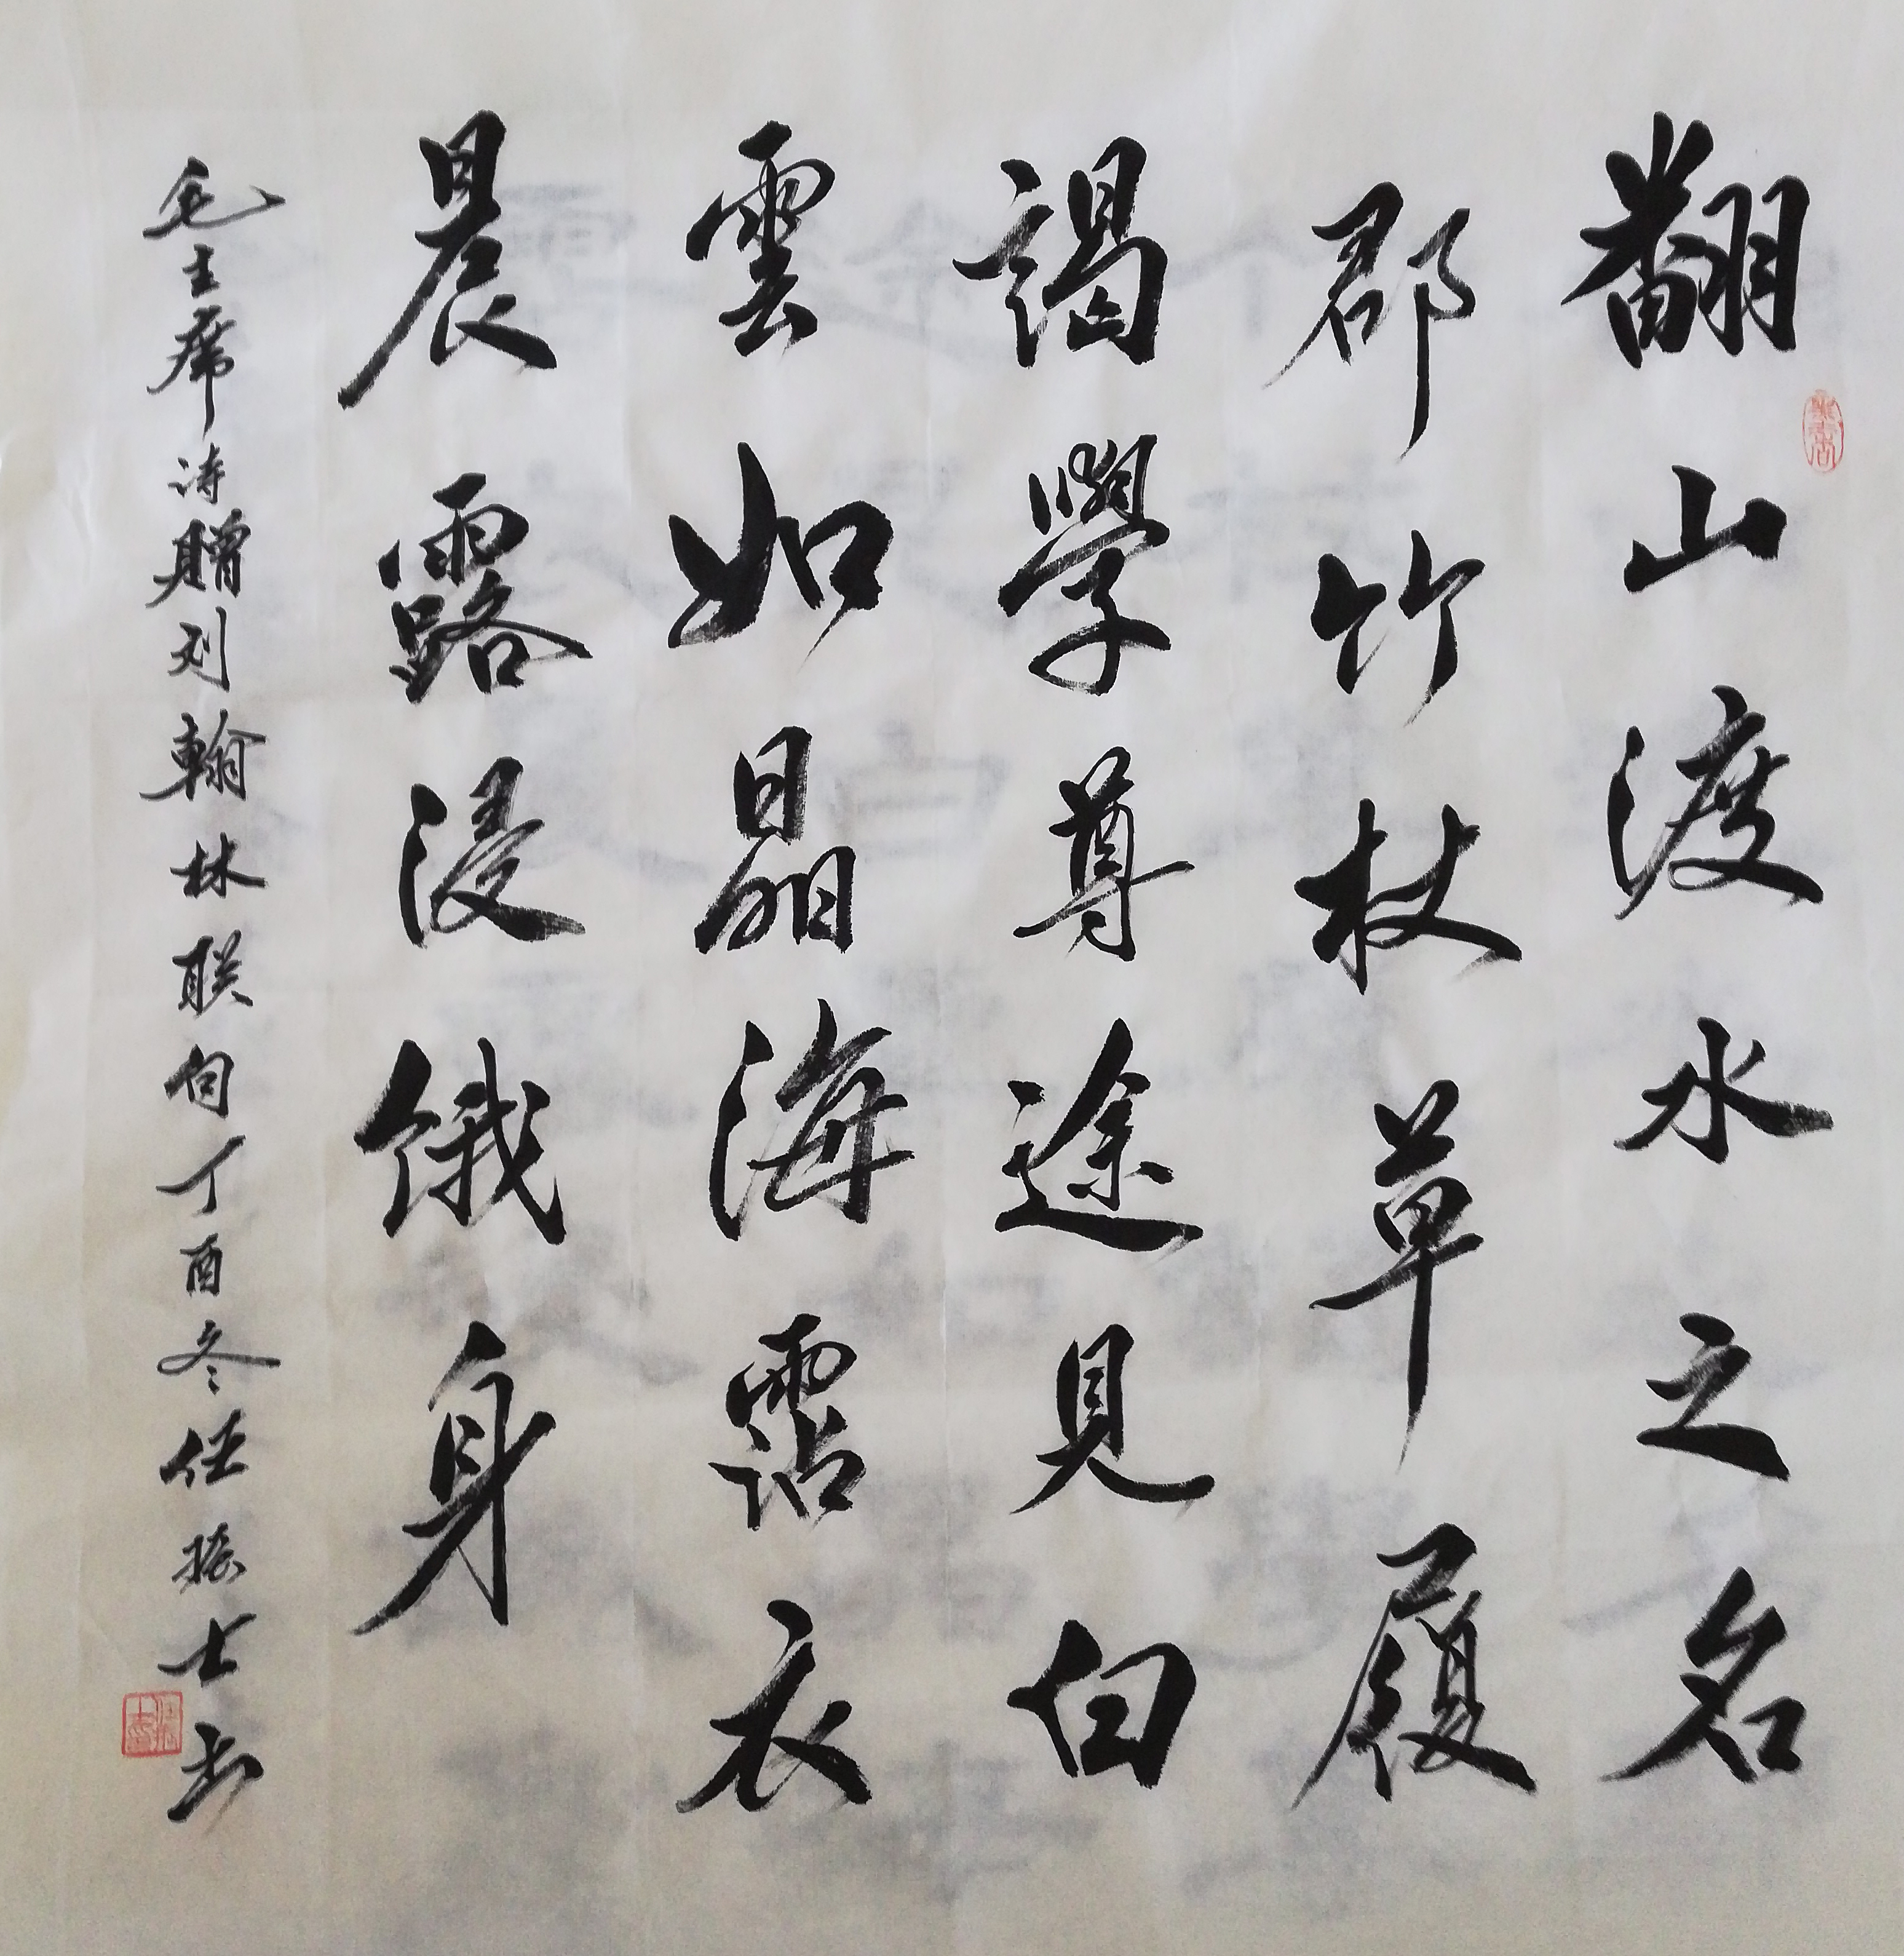 翻山渡水之名
郡竹杖草履
謁學尊途見白
雲如晶海霑衣
晨露浸餓身
毛主席诗贈刘翰林联句丁酉冬任士书